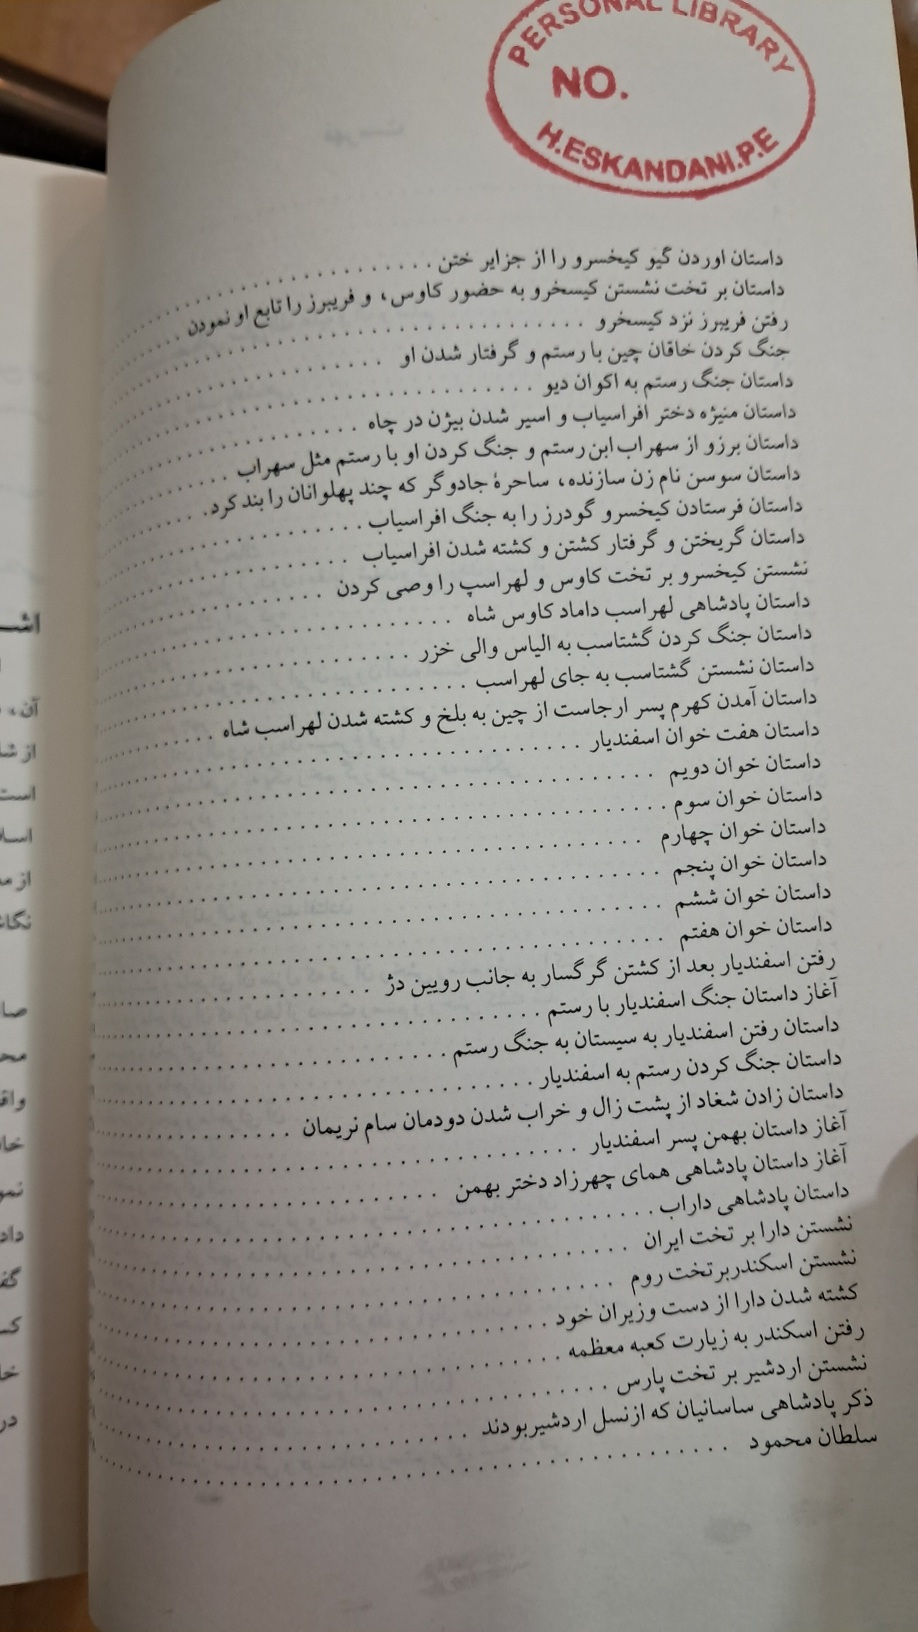 PERSONAL LIBRARY
NO.
H.ESKANDANI.P.E
داستان اوردن گیو کیخسرو را از جزایر ختن
داستان بر تخت نشستن کیسخرو به حضور کاوس، و فریبرز را تابع او نمودن
رفتن فریبرز نزد کیسخرو
جنگ کردن خاقان چین با رستم و گرفتار شدن او
داستان جنگ رستم به اکوان دیو
داستان منیژه دختر افراسیاب و اسیر شدن بیژن در چاه
داستان برزو از سهراب ابن رستم و جنگ کردن او با رستم مثل سهراب
داستان سوسن نام زن سازنده، ساحرهٔ جادوگر که چند پهلوانان را بند کرد.
داستان فرستادن کیخسرو گودرز را به جنگ افراسیاب
داستان گریختن و گرفتار کشتن و کشته شدن افراسیاب
نشستن کیخسرو بر تخت کاوس و لهراسپ را وصی کردن
داستان پادشاهی لهراسب داماد کاوس شاه
داستان جنگ کردن گشتاسب به الیاس والی خزر
داستان نشستن گشتاسب به جای لهراسب
داستان آمدن کهرم پسر ارجاست از چین به بلخ و کشته شدن لهراسب شاه
داستان هفت خوان اسفندیار
داستان خوان دویم
داستان خوان سوم
داستان خوان چهارم
داستان خوان پنجم
داستان خوان ششم
داستان خوان هفتم
رفتن اسفندیار بعد از کشتن گرگسار به جانب رویین دژ
آغاز داستان جنگ اسفندیار با رستم
داستان رفتن اسفندیار به سیستان به جنگ رستم
داستان جنگ کردن رستم به اسفندیار
داستان زادن شغاد از پشت زال و خراب شدن دودمان سام نریمان
آغاز داستان بهمن پسر اسفندیار
آغاز داستان پادشاهی همای چهرزاد دختر بهمن
داستان پادشاهی داراب
نشستن دارا بر تخت ایران
نشستن اسکندربرتخت روم
کشته شدن دارا از دست وزیران خود
رفتن اسکندر به زیارت کعبه معظمه
نشستن اردشیر بر تخت پارس
ذکر پادشاهی ساسانیان که ازنسل اردشیربودند
سلطان محمود
آن،
از
است
از